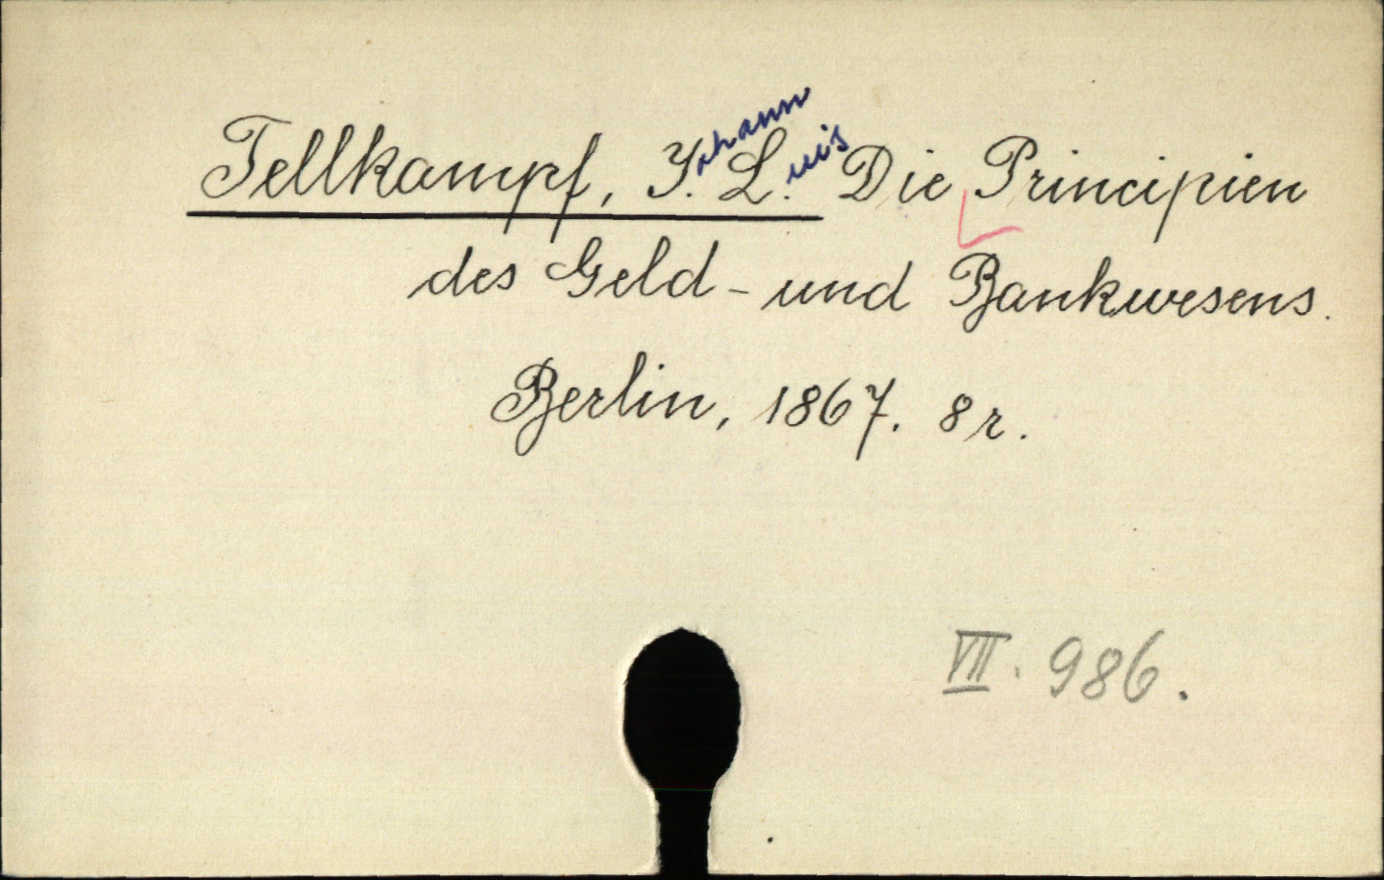 Tellkampf, J.ohann L.uis Die Principien
des Geld - und Bankwesens.
Berlin, 1867. 8r.
VII. 986.